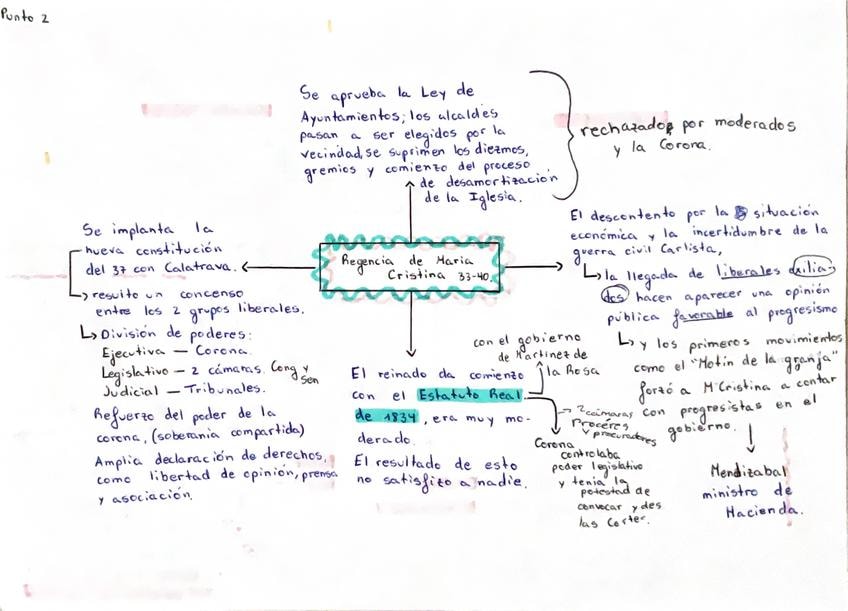 Punto 2
Se aprueba la Ley de
Ayuntamientos; los alcaldes
pasan a ser elegidos por la
vecindad, se suprimen los diezmos,
gremios y comienzo del proceso
de desamortización
de la Iglesia.
rechazados por moderados
y la Corona.
Se implanta la
nueva constitución
del 37 con Calatrava.
resulto un concenso
entre los 2 grupos liberales.
División de poderes:
Ejecutiva — Corona.
Legislativo — 2 cámaras. Cong y
Sen
Judicial — Tribunales.
Refuerzo del poder de la
corona, (soberania compartida)
Amplia declaración de derechos,
como libertad de opinión, prensa
y asociación.
Regencia de Maria
Cristina 33-40.
El descontento por la situación
económica y la incertidumbre de la
guerra civil Carlista,
la llegada de liberales exilia-
dos hacen aparecer una opinión
pública favorable al progresismo
y los primeros movimientos
como el "Motín de la granja"
forzó a Mª Cristina a contar
con progresistas en el
gobierno.
Mendizabal
ministro de
Hacienda.
con el gobierno
de Martinez de
la Rosa
El reinado da comienzo
con el Estatuto Real
de 1834, era muy mo-
derado.
El resultado de esto
no satisfizo a nadie.
2 cámaras
Procéres
y procuradores
Corona
controlaba
poder legislativo
y tenía la
potestad de
convocar y des
las Cortes.